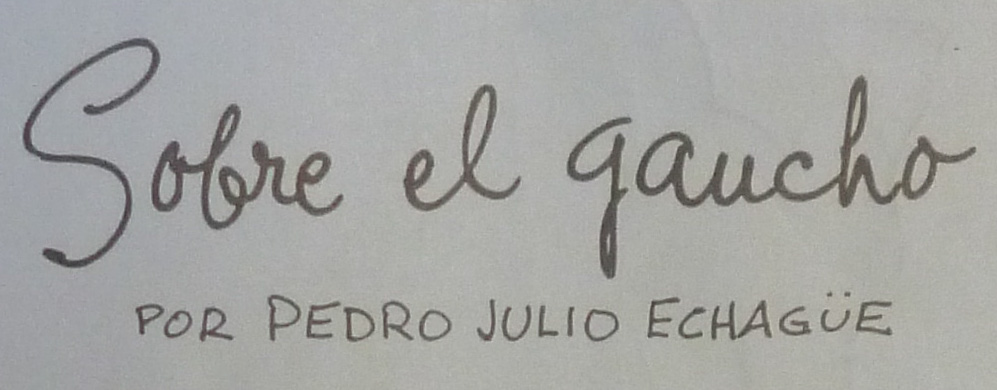 Sobre el gaucho
POR PEDRO JULIO ECHAGÜE